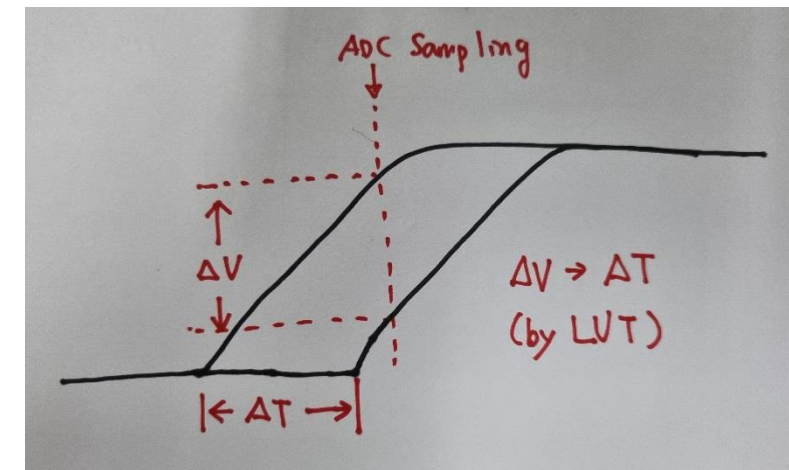 ADC Sampling
ΔV
ΔV → ΔT
(by LUT)
|← ΔT →|